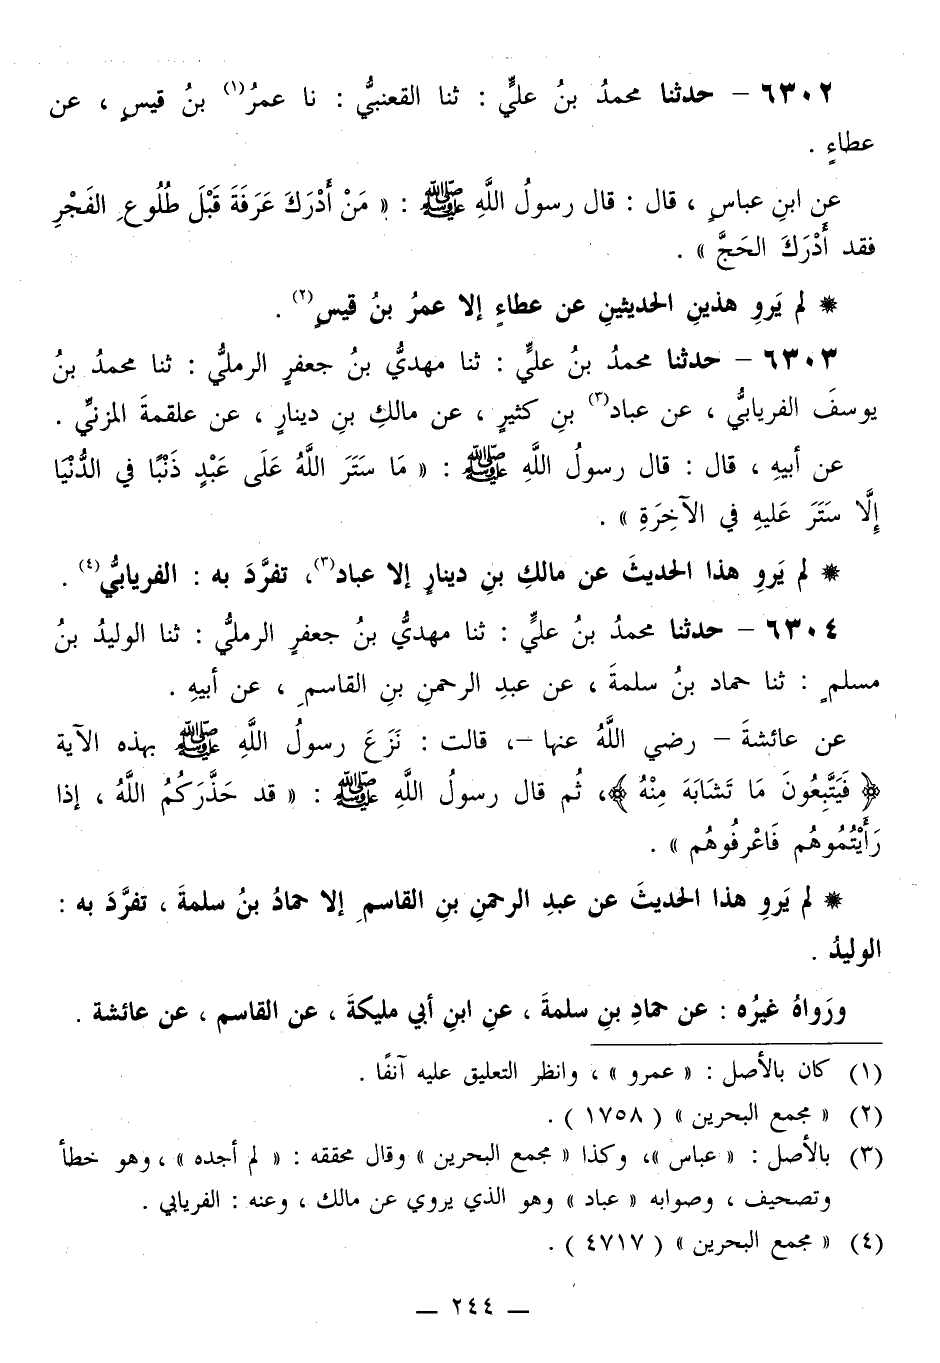 ٦٣٠٢ – حدثنا محمدُ بنُ عليٍّ : ثنا القعنبيُّ : نا عمرُ(١) بنُ قيسٍ ، عن
عطاءٍ .
عن ابنِ عباسٍ ، قال : قال رسولُ اللَّهِ ﷺ : « مَنْ أَدْرَكَ عَرَفَةَ قَبْلَ طُلُوعِ الفَجْرِ
فقد أَدْرَكَ الحَجَّ » .
* لم يَروِ هذينِ الحديثينِ عن عطاءٍ إلا عمرُ بنُ قيسٍ(٢) .
٦٣٠٣ – حدثنا محمدُ بنُ عليٍّ : ثنا مهديُّ بنُ جعفرٍ الرمليُّ : ثنا محمدُ بنُ
يوسفَ الفريابيُّ ، عن عباد(٣) بنِ كثيرٍ ، عن مالكِ بنِ دينارٍ ، عن علقمةَ المزنيِّ .
عن أبيهِ ، قال : قال رسولُ اللَّهِ ﷺ : « مَا سَتَرَ اللَّهُ عَلَى عَبْدٍ ذَنْبًا في الدُّنْيَا
إِلَّا سَتَرَ عَليهِ فِي الآخِرَةِ » .
* لم يَروِ هذا الحديثَ عن مالكِ بنِ دينارٍ إلا عباد(٣)، تفرَّدَ به : الفريابيُّ(٤) .
٦٣٠٤ – حدثنا محمدُ بنُ عليٍّ : ثنا مهديُّ بنُ جعفرٍ الرمليُّ : ثنا الوليدُ بنُ
مسلمٍ : ثنا حماد بنُ سلمةَ ، عن عبدِ الرحمنِ بنِ القاسمِ ، عن أبيهِ .
عن عائشةَ – رضي اللَّهُ عنها –، قالت : نَزَعَ رسولُ اللَّهِ ﷺ بهذه الآية
﴿ فَيَتَّبِعُونَ مَا تَشَابَهَ مِنْهُ ﴾، ثُم قال رسولُ اللَّهِ ﷺ : « قد حَذَّرَكُمُ اللَّهُ ، إذا
رَأَيْتُمُوهُم فَاعْرِفُوهُم » .
* لم يَروِ هذا الحديثَ عن عبدِ الرحمنِ بنِ القاسمِ إلا حمادُ بنُ سلمةَ ، تفرَّدَ به :
الوليدُ .
ورَواهُ غيرُه : عن حمادِ بنِ سلمةَ ، عنِ ابنِ أبي مليكةَ ، عن القاسم ، عن عائشة .
(١) كان بالأصل : « عمرو » ، وانظر التعليق عليه آنفًا .
(٢) « مجمع البحرين » ( ١٧٥٨ ) .
(٣) بالأصل : « عباس »، وكذا « مجمع البحرين » وقال محققه : « لم أجده » ، وهو خطأ
وتصحيف ، وصوابه « عباد » وهو الذي يروي عن مالك ، وعنه : الفريابي .
(٤) « مجمع البحرين » ( ٤٧١٧ ) .
— ٢٤٤ —